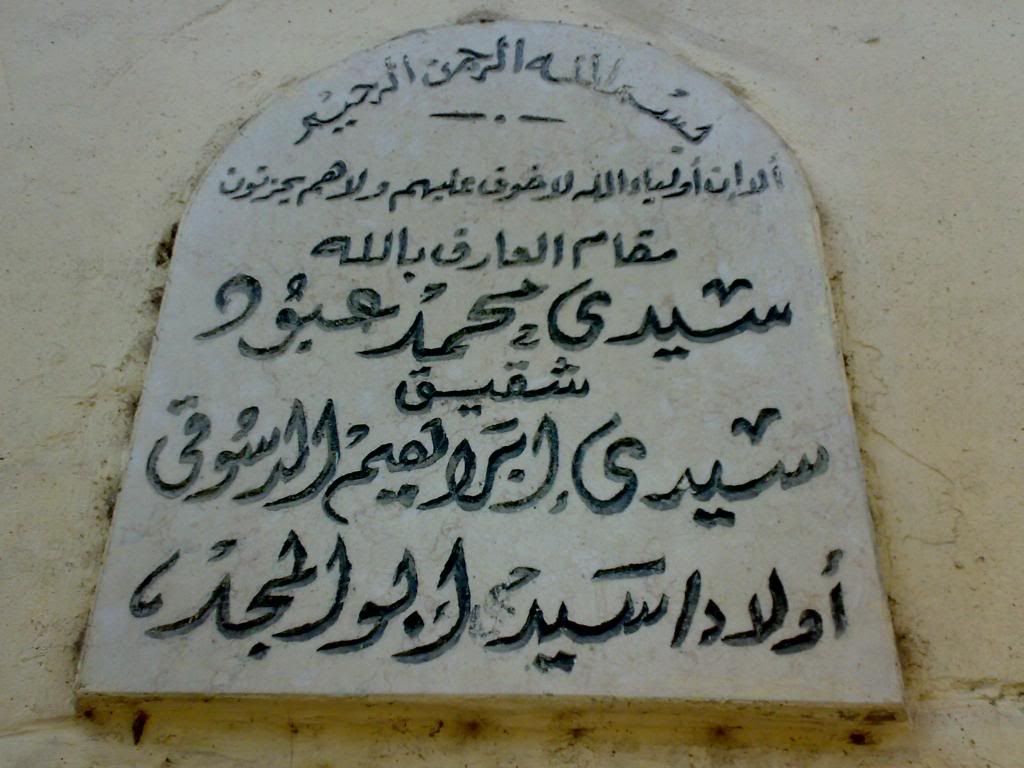 بسم الله الرحمن الرحيم
ألا إن أولياء الله لا خوف عليهم ولا هم يحزنون
مقام العارف بالله
سيدى محمد عبود
شقيق
سيدى إبراهيم الدسوقى
أولاد سيدى أبو المجد